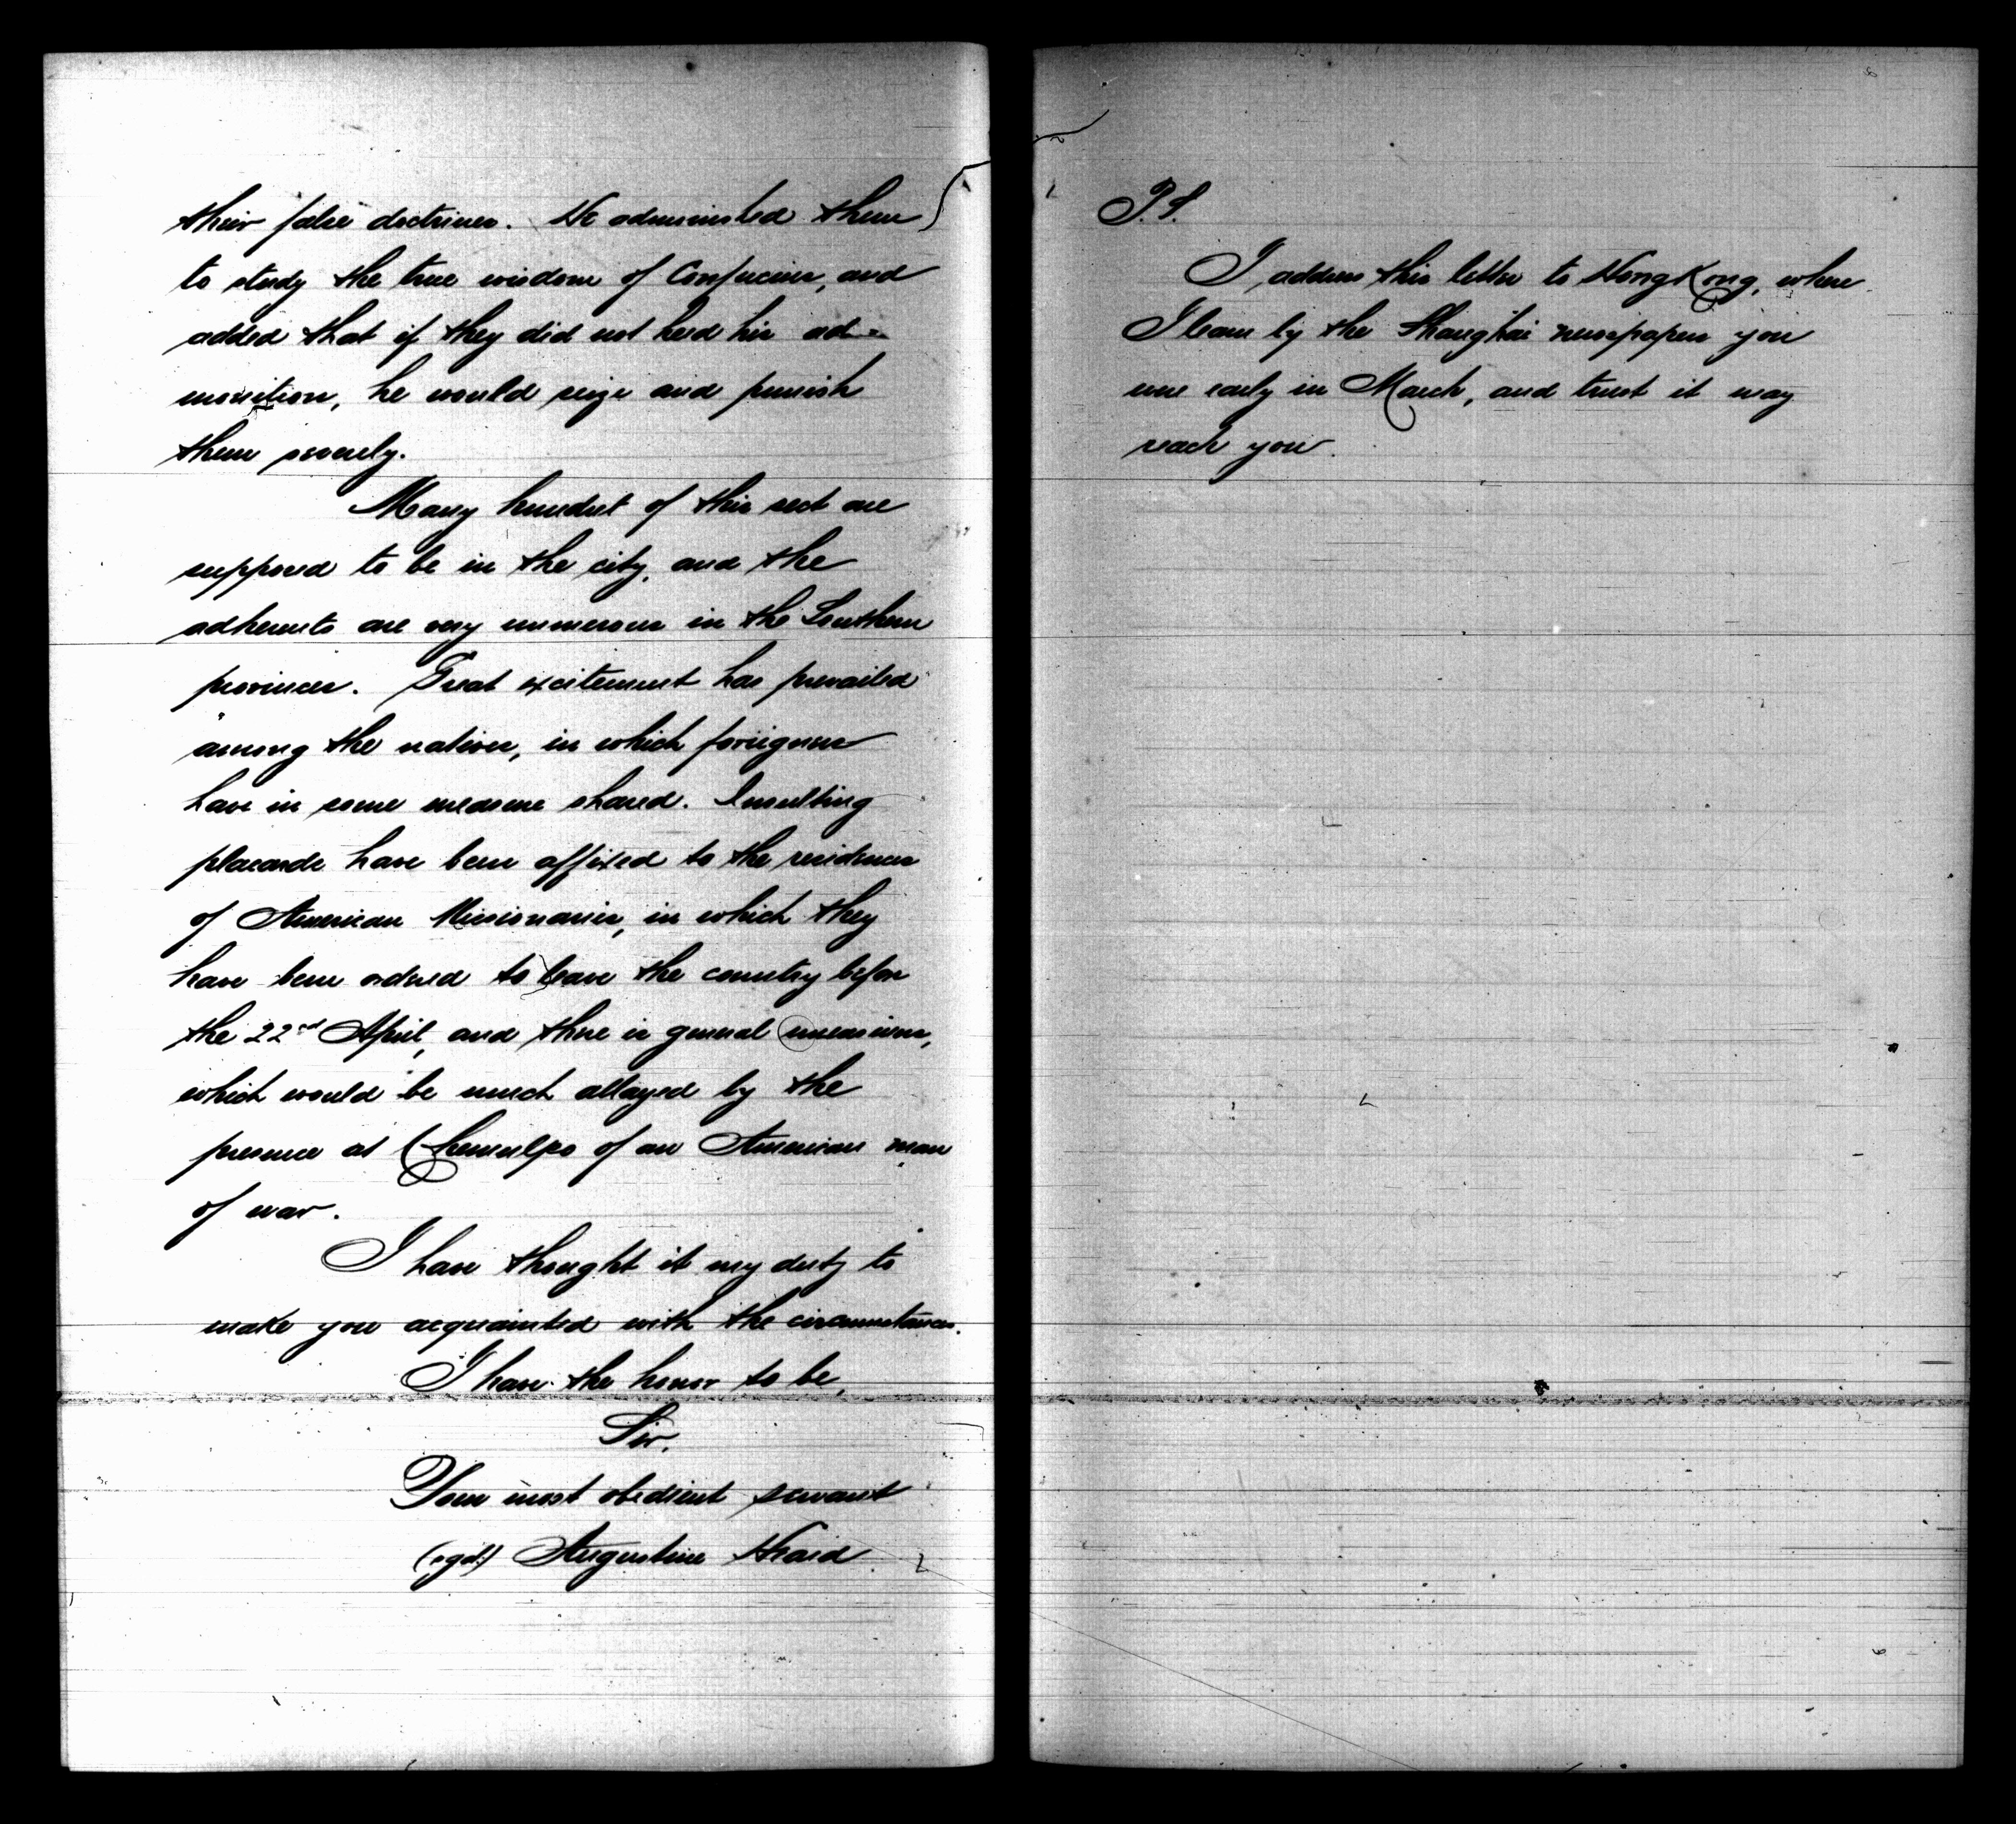 their false doctrines. He admonished them
to study the true wisdom of Confucius, and
added that if they did not heed his ad-
monition, he would seize and punish
them severely.
Many hundred of this sect are
supposed to be in the city, and the
adherents are very numerous in the Southern
provinces. Great excitement has prevailed
among the natives, in which foreigners
have in some measure shared. Insulting
placards have been affixed to the residences
of American Missionaries, in which they
have been ordered to leave the country before
the 22nd April, and there is general uneasiness,
which would be much allayed by the
presence at Chemulpo of an American man
of war.
I have thought it my duty to
make you acquainted with the circumstances.
I have the honor to be,
Sir,
Your most obedient servant
(sgd:) Augustine Heard
P.S.
I address this letter to HongKong, where
I learn by the Shanghai newspapers you
were early in March, and trust it may
reach you.